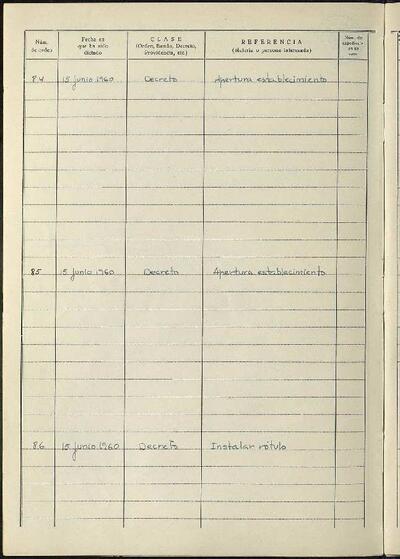 Núm. de orden
Fecha en que ha sido dictado
CLASE
(Orden, Bando, Decreto, Providencia, etc.)
REFERENCIA
(Materia o persona interesada)
Núm. de
84 15 junio 1960 Decreto Apertura establecimiento
85 15 junio 1960 Decreto Apertura establecimiento
86 15 junio 1960 Decreto Instalar rótulo